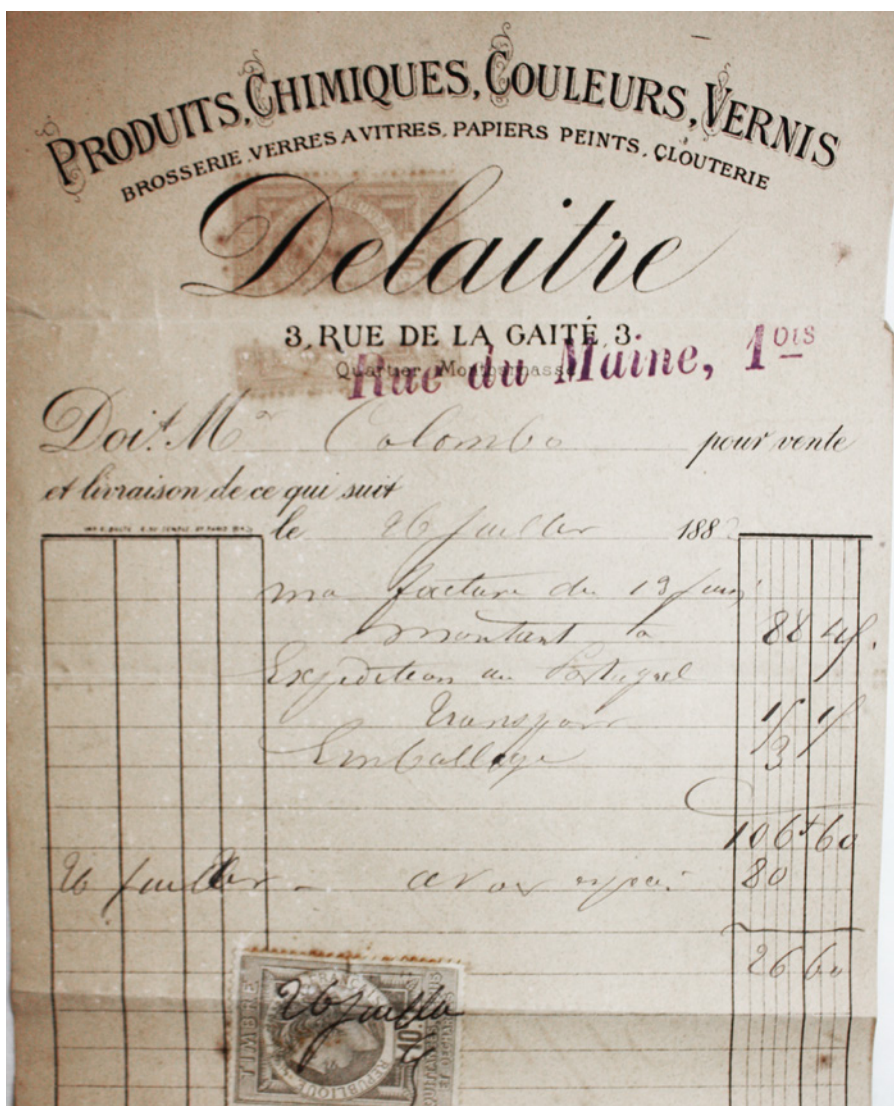 PRODUITS, CHIMIQUES, COULEURS, VERNIS
BROSSERIE, VERRES A VITRES, PAPIERS PEINTS, CLOUTERIE
Delaitre
3, RUE DE LA GAITÉ, 3.
Quartier Montparnasse
Rue du Maine, 1 bis
Doit Mr Colombo pour vente
et livraison de ce qui suit
le 26 juillet 188
ma facture du 19 juin
montant à 88 45
Expédition au Portugal
Transport 15 15
Emballage 3
106 f 60
26 juillet 80
26 60
TIMBRE
FRANÇAISE
26 juillet
10
RÉPUBLIQUE